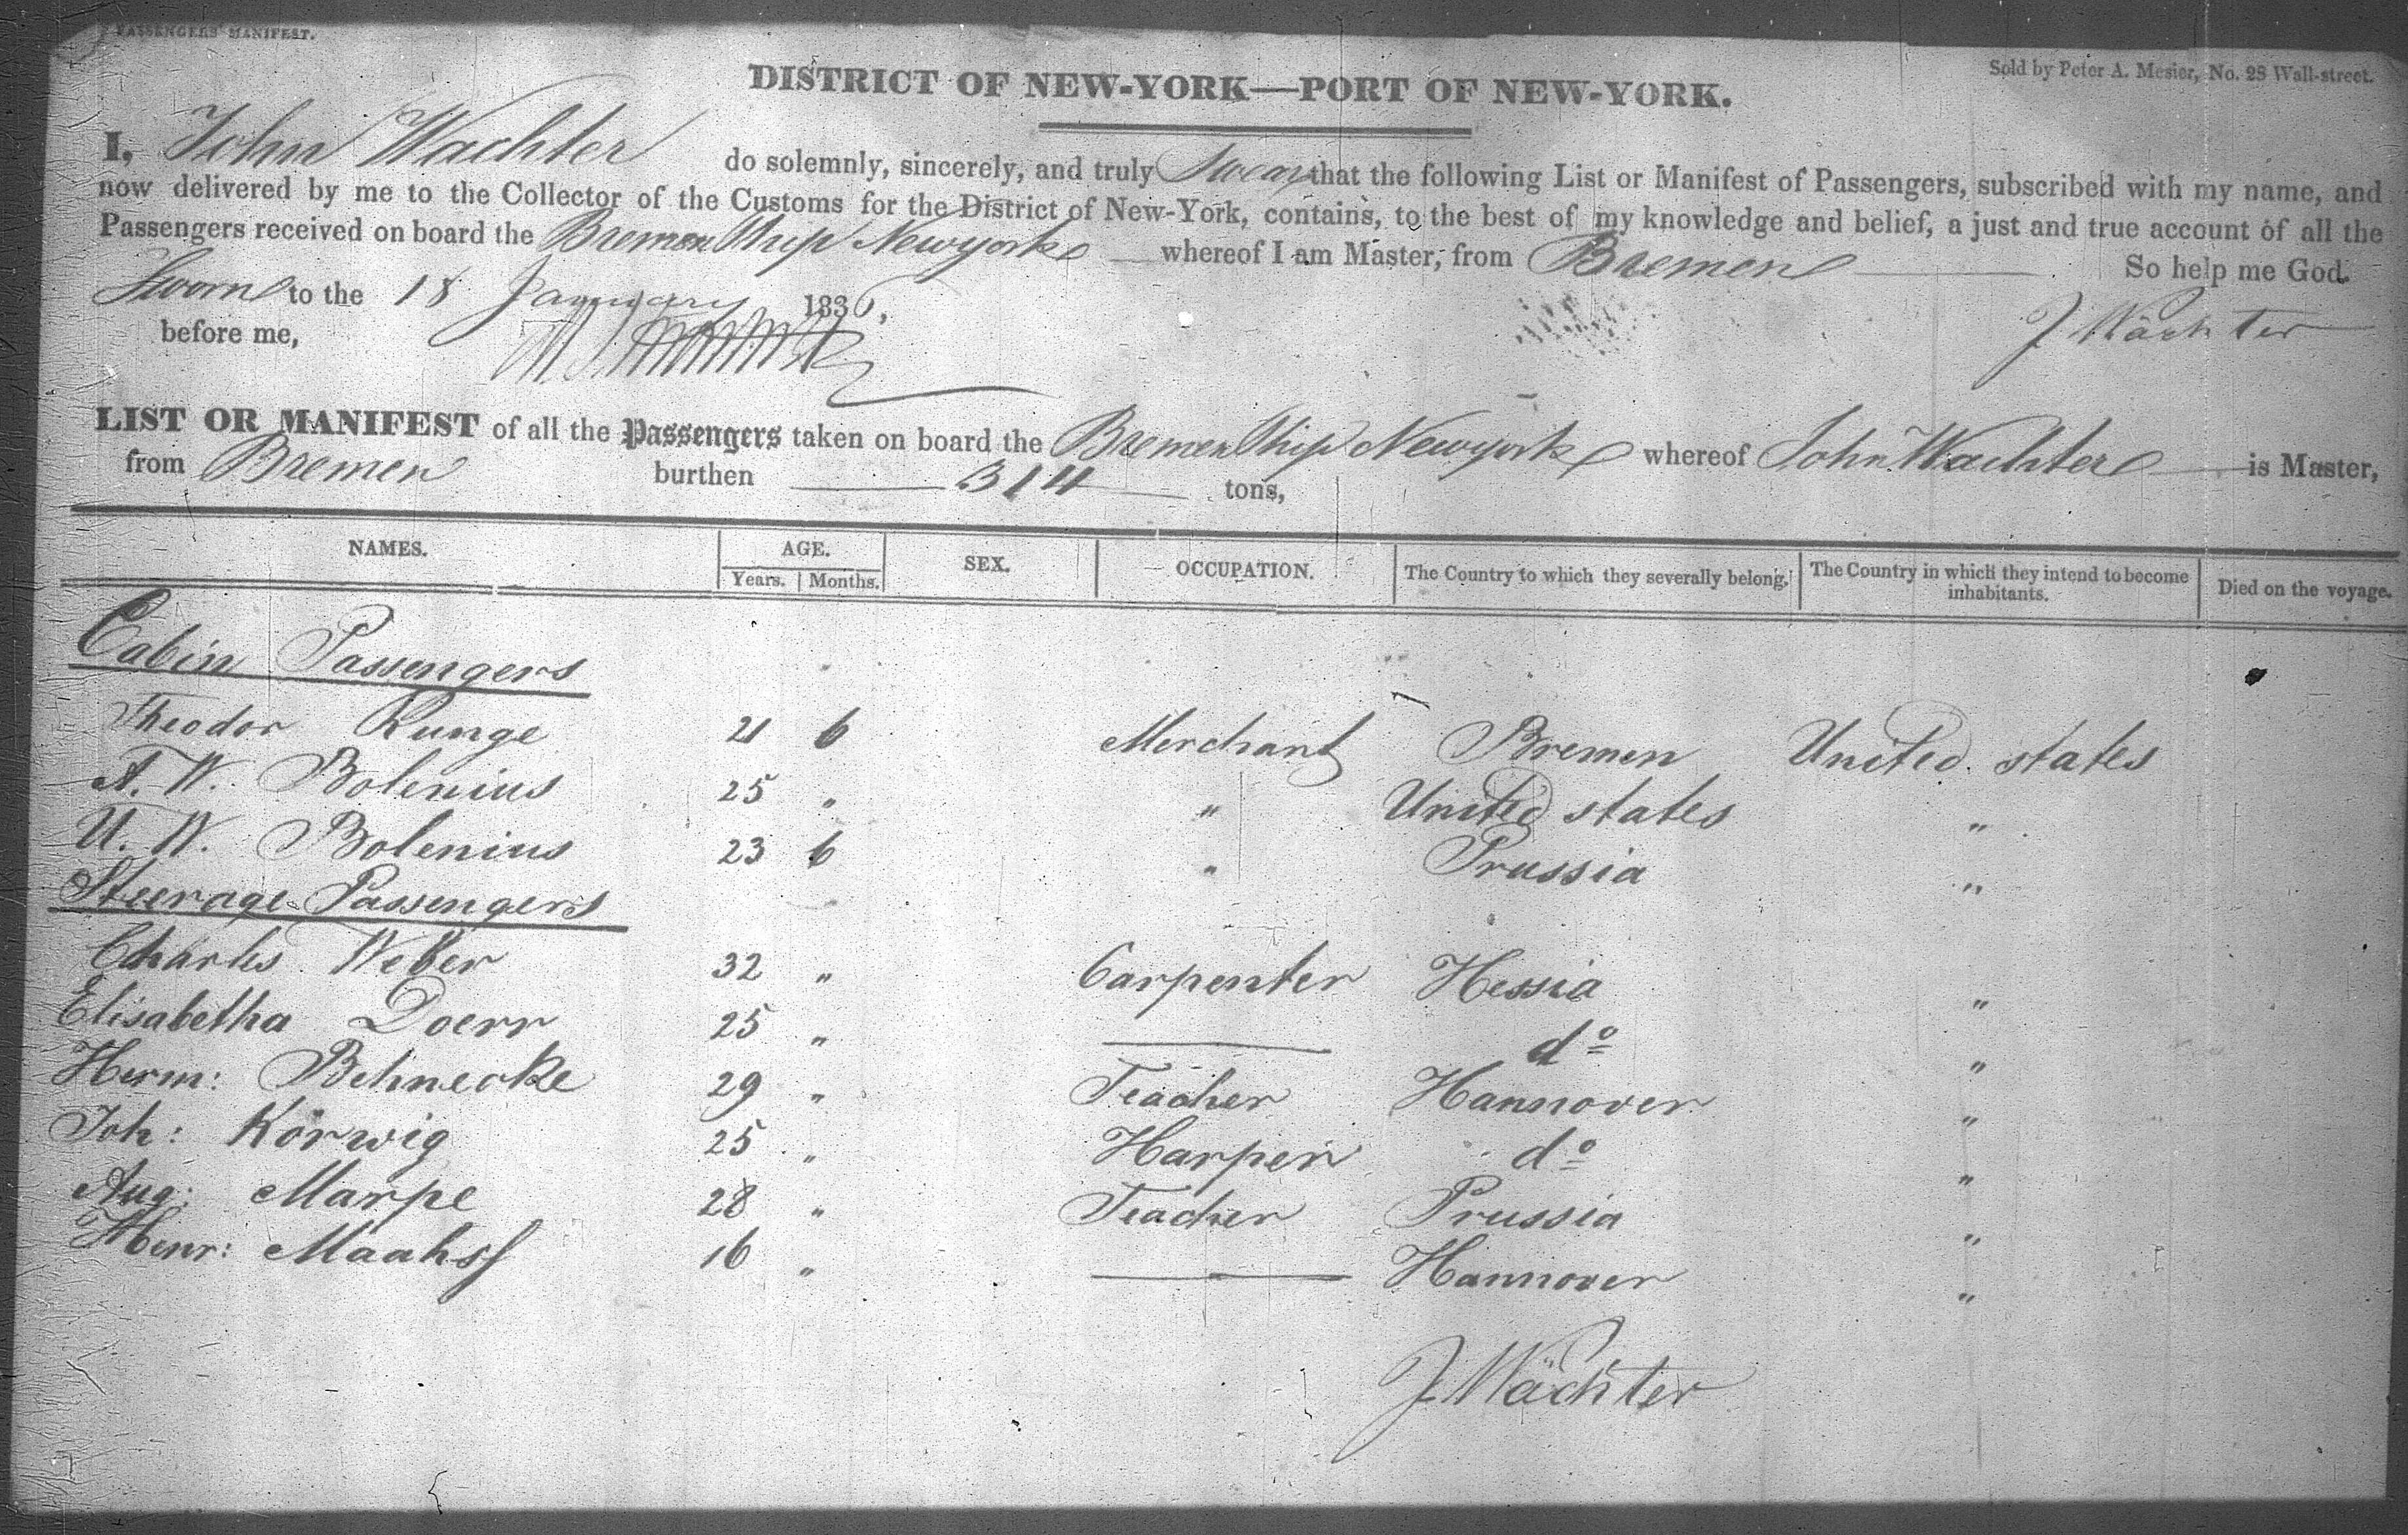 PASSENGERS' MANIFEST.
Sold by Peter A. Mesier, No. 28 Wall-street.
DISTRICT OF NEW-YORK—PORT OF NEW-YORK.
I, John Wachter do solemnly, sincerely, and truly Swear that the following List or Manifest of Passengers, subscribed with my name, and
now delivered by me to the Collector of the Customs for the District of New-York, contains, to the best of my knowledge and belief, a just and true account of all the
Passengers received on board the Bremen Ship Newyork whereof I am Master, from Bremen So help me God.
Sworn to the 18 January 1836,
before me,
J Wächter
LIST OR MANIFEST of all the Passengers taken on board the Bremen Ship Newyork whereof John Wachter is Master,
from Bremen burthen 314 tons,
NAMES. AGE. SEX. OCCUPATION. The Country to which they severally belong. The Country in which they intend to become inhabitants. Died on the voyage.
Years. Months.
Cabin Passengers
Theodor Runge 21 6 Merchant Bremen United states
A. W. Bolenius 25 " " United states "
U. W. Bolenius 23 6 " Prussia "
Steerage Passengers
Charles Weber 32 " Carpenter Hessia "
Elisabetha Doerr 25 " — do "
Herm: Behnecke 29 " Teacher Hannover "
Joh: Körwig 25 " Harper do "
Aug: Marpe 28 " Teacher Prussia "
Henr: Maahsf 16 " — Hannover "
J Wächter